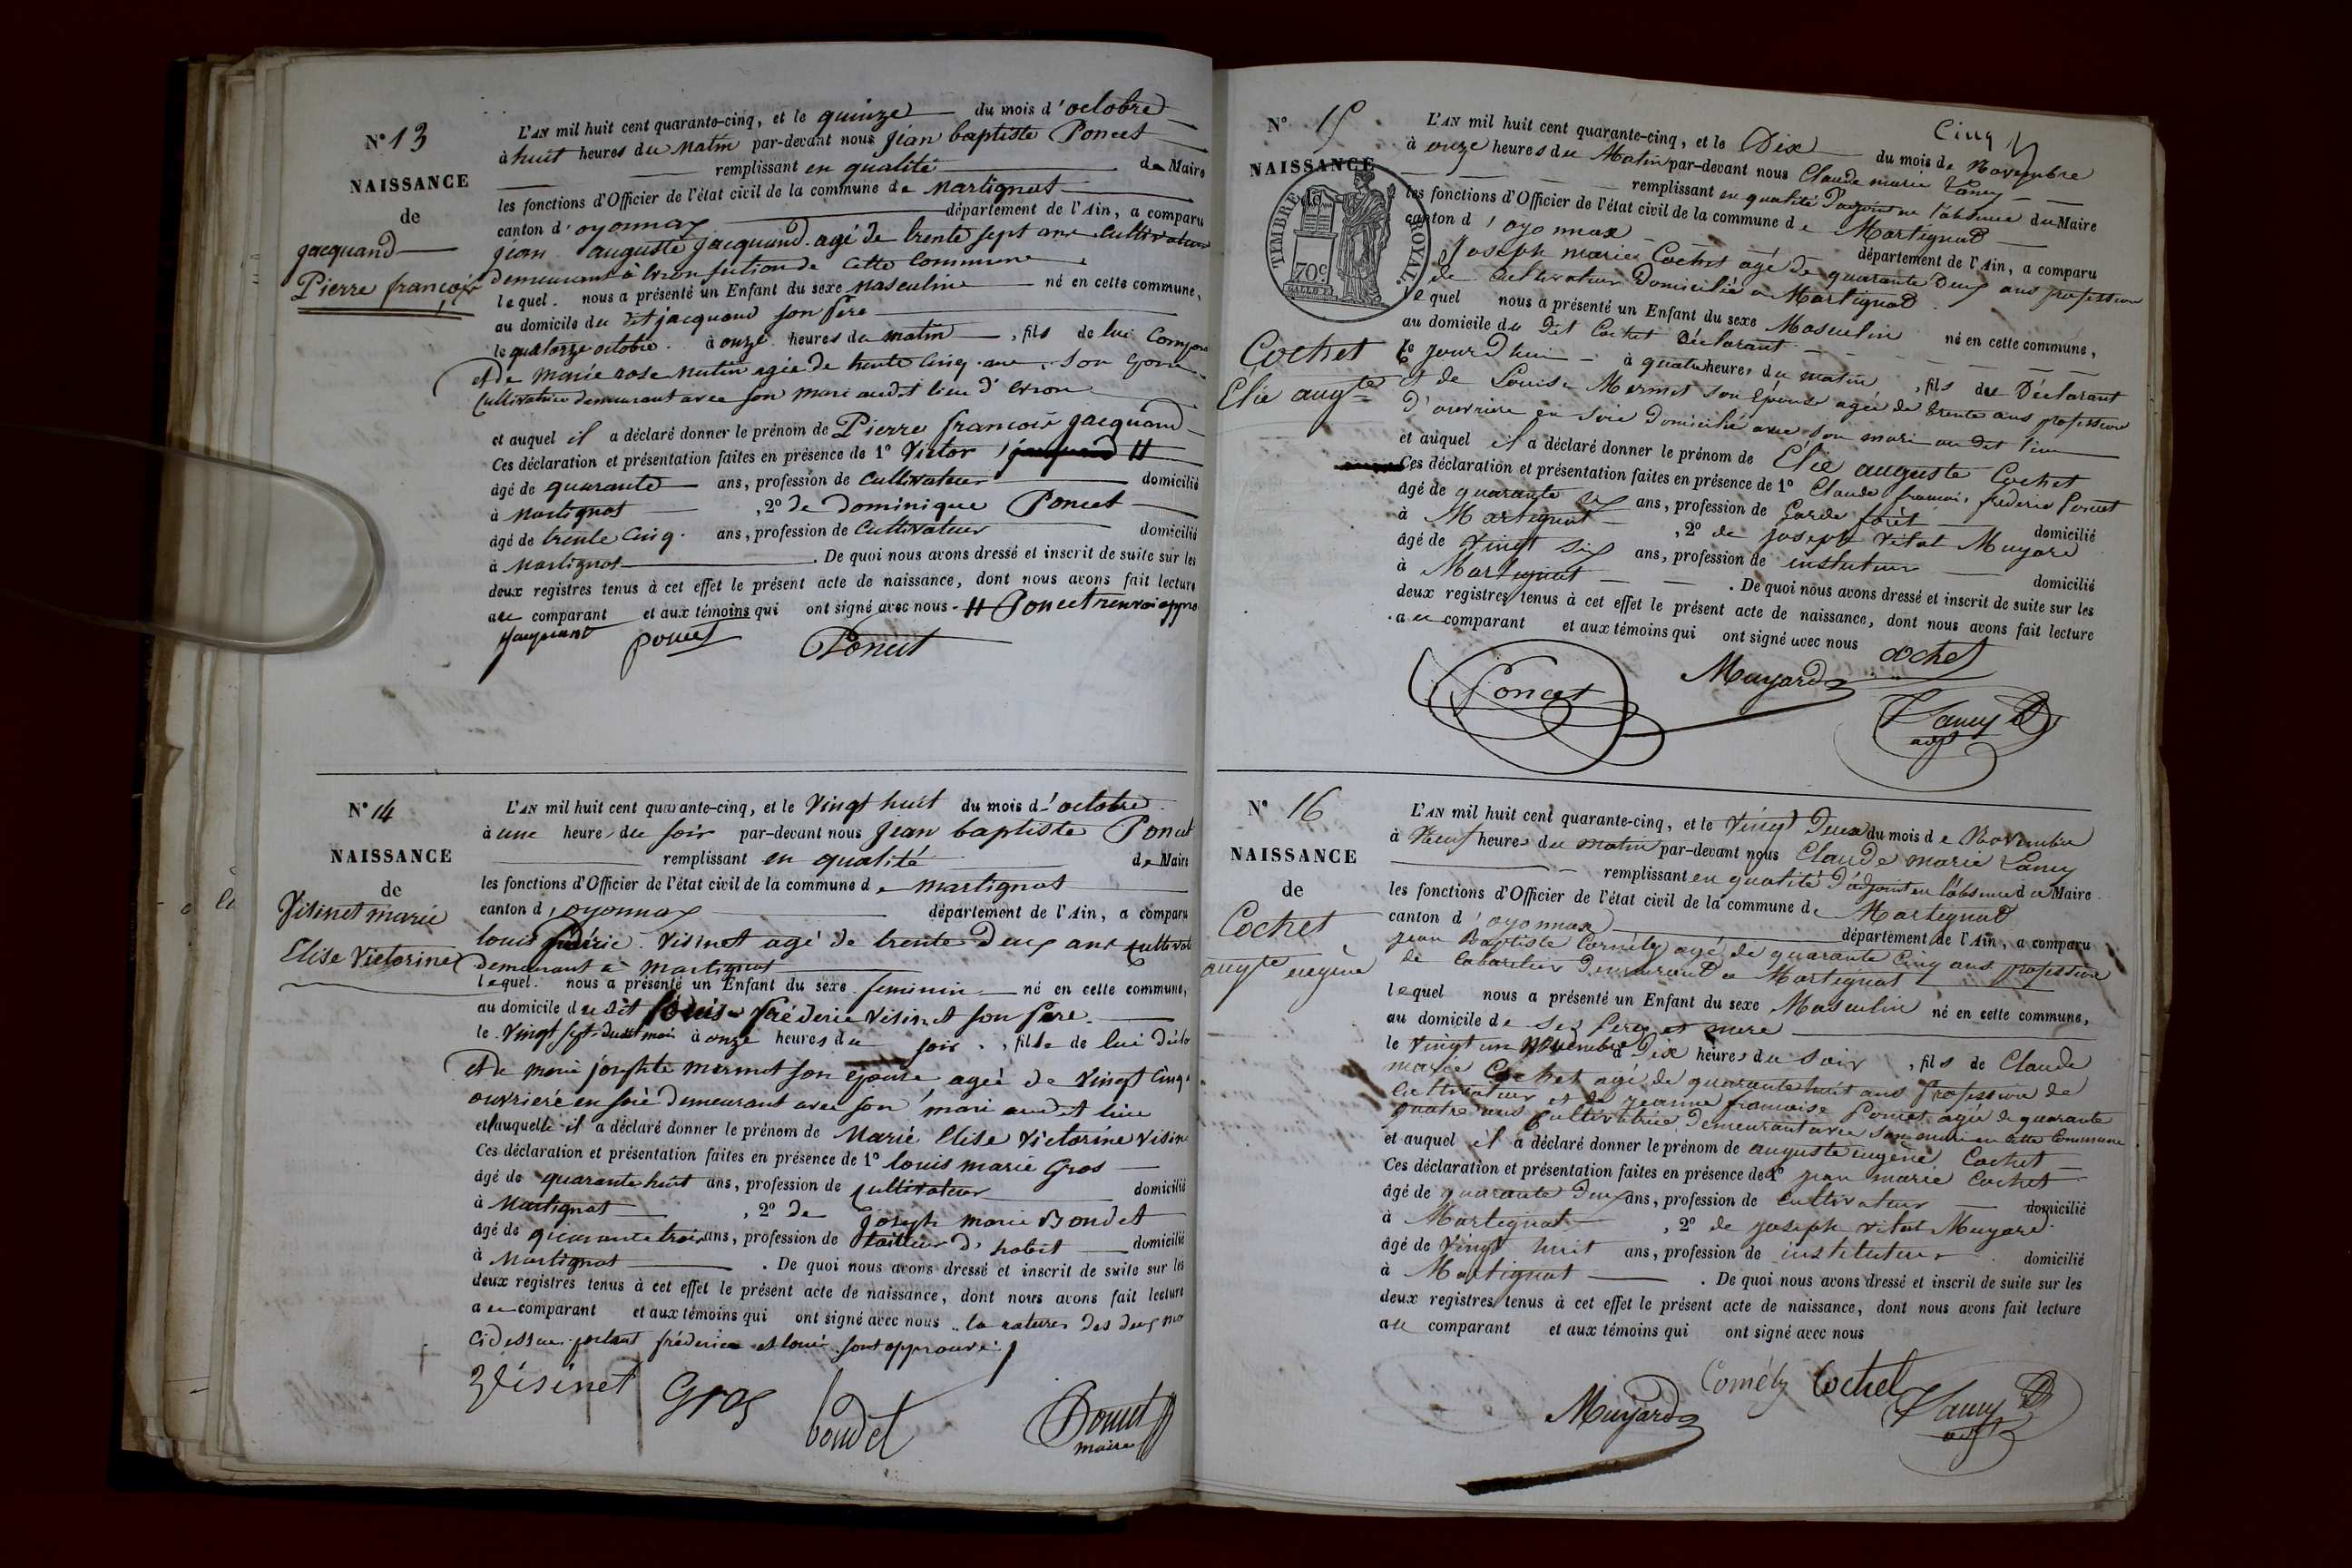 N° 13
NAISSANCE
de
jacquand
Pierre françois
L'AN mil huit cent quarante-cinq, et le quinze du mois d'octobre
à huit heures du matin par-devant nous jean baptiste Poncet
remplissant en qualité de Maire
les fonctions d'Officier de l'état civil de la commune de Martignat
canton d'oyonnax département de l'Ain, a comparu
jean auguste jacquand agé de trente sept ans Cultivateur
demeurant à section de Cette Commune
lequel nous a présenté un Enfant du sexe masculin né en cette commune,
au domicile du dit jacquand son père
le quatorze octobre à onze heures du matin, fils de lui
et de marie rose agée de trente cinq ans son
Cultivatrice demeurant avec son mari audit lieu d'
et auquel il a déclaré donner le prénom de Pierre françois jacquand
Ces déclaration et présentation faites en présence de 1° Victor
âgé de quarante ans, profession de Cultivateur domicilié
à Martignat, 2° de dominique Poncet
âgé de trente Cinq ans, profession de Cultivateur domicilié
à Martignat. De quoi nous avons dressé et inscrit de suite sur les
deux registres tenus à cet effet le présent acte de naissance, dont nous avons fait lecture
au comparant et aux témoins qui ont signé avec nous. Poncet renvoi
poncet Poncet
N° 14
NAISSANCE
de
Visinet marie
Elise Victorine
L'AN mil huit cent quarante-cinq, et le Vingt huit du mois d'octobre
à une heure du soir par-devant nous jean baptiste Poncet
remplissant en qualité de Maire
les fonctions d'Officier de l'état civil de la commune de Martignat
canton d'oyonnax département de l'Ain, a comparu
louis Visinet agé de trente Deux ans
demeurant à Martignat
lequel nous a présenté un Enfant du sexe feminin né en cette commune,
au domicile du dit fréderic Visinet son père
le Vingt sept dudit mois à onze heures du soir, fille de lui
et de marie josephte mermet son épouse agée de Vingt Cinq
ouvrière en soie demeurant avec son mari audit lieu
et auquelle il a déclaré donner le prénom de Marie Elise Victorine
Ces déclaration et présentation faites en présence de 1° louis marie Gros
âgé de quarante huit ans, profession de Cultivateur domicilié
à Martignat, 2° de joseph marie Bondet
âgé de quarante trois ans, profession de tailleur d'habit domicilié
à Martignat. De quoi nous avons dressé et inscrit de suite sur les
deux registres tenus à cet effet le présent acte de naissance, dont nous avons fait lecture
au comparant et aux témoins qui ont signé avec nous. la ratures des deux
Cidessus portant fréderic et louis sont approuvé
Visinet Gros bondet Poncet
maire
Cinq
N° 15
NAISSANCE
de
TIMBRE ROYAL.
70c.
Cochet
Elie augte
L'AN mil huit cent quarante-cinq, et le Dix du mois de Novembre
à onze heures du Matin par-devant nous Claude marie
remplissant en qualité D'adjoint en l'absence du Maire
les fonctions d'Officier de l'état civil de la commune de Martignat
canton d'oyonnax département de l'Ain, a comparu
Joseph marie Cochet agé de quarante Deux ans profession
de cultivateur Domicilié a Martignat
lequel nous a présenté un Enfant du sexe Masculin né en cette commune,
au domicile du Dit Cochet Déclarant
le jourd'hui à quatre heures du matin, fils du Déclarant
et de Louise Mermet son Epouse agée de trente ans profession
D'ouvrière en soie Domiciliée avec son mari au dit lieu
et auquel il a déclaré donner le prénom de Elie auguste Cochet
Ces déclaration et présentation faites en présence de 1° Claude françois frederic Poncet
âgé de quarante six ans, profession de Garde forêt domicilié
à Martignat, 2° de joseph Vital Muyard
âgé de Vingt six ans, profession de instituteur domicilié
à Martignat. De quoi nous avons dressé et inscrit de suite sur les
deux registres tenus à cet effet le présent acte de naissance, dont nous avons fait lecture
au comparant et aux témoins qui ont signé avec nous Cochet
Poncet Muyard
N° 16
NAISSANCE
de
Cochet
augte eugène
L'AN mil huit cent quarante-cinq, et le Vingt Deux du mois de Novembre
à Neuf heures du matin par-devant nous Claude marie
remplissant en qualité D'adjoint en l'absence du Maire
les fonctions d'Officier de l'état civil de la commune de Martignat
canton d'oyonnax département de l'Ain, a comparu
jean Baptiste agé de quarante Cinq ans profession
de Cabaretier Demeurant a Martignat
lequel nous a présenté un Enfant du sexe Masculin né en cette commune,
au domicile de ses Père et mere
le Vingt un Novembre à Dix heures du soir, fils de Claude
marie Cochet agé de quarante huit ans profession de
Cultivateur et de jeanne françoise Poncet agée de quarante
quatre ans Cultivatrice Demeurant avec son mari en Cette Commune
et auquel il a déclaré donner le prénom de auguste eugène Cochet
Ces déclaration et présentation faites en présence de 1° jean marie Cochet
âgé de quarante Deux ans, profession de cultivateur domicilié
à Martignat, 2° de joseph Vital Muyard
âgé de Vingt huit ans, profession de instituteur domicilié
à Martignat. De quoi nous avons dressé et inscrit de suite sur les
deux registres tenus à cet effet le présent acte de naissance, dont nous avons fait lecture
au comparant et aux témoins qui ont signé avec nous
Muyard Cochet